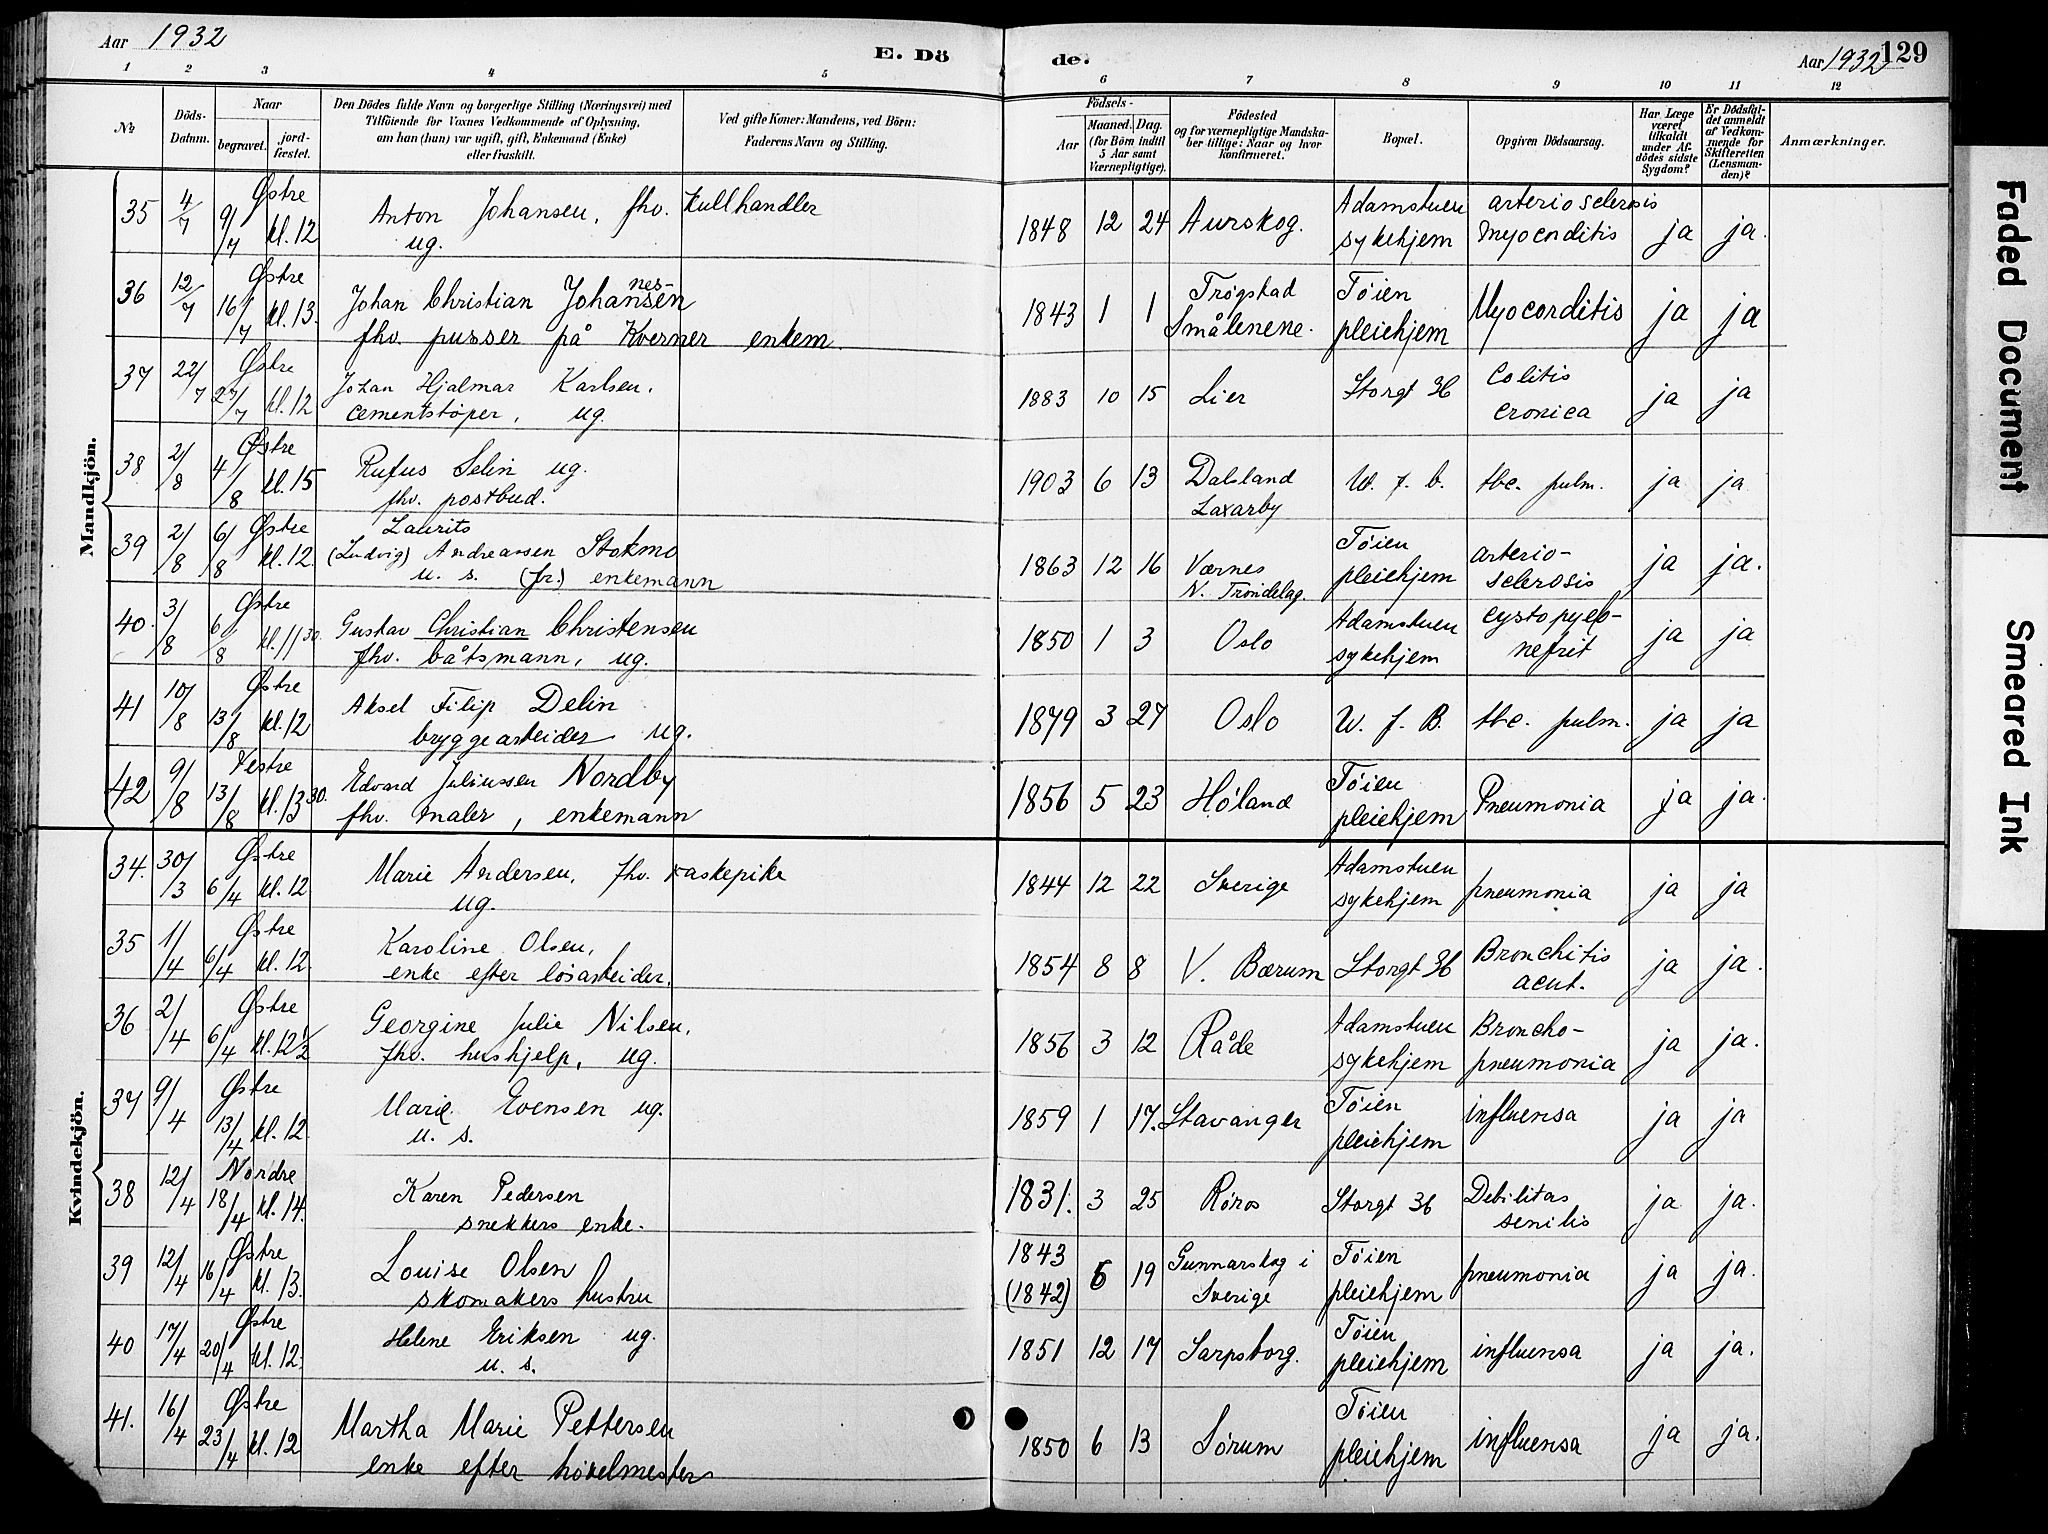 Aar 1932
E. Dö
de.
Aar 1932
129
1 2 3 4 5 6 7 8 9 10 11 12
№ Döds-Datum. Naar begravet. jord-fæstet. Den Dödes fulde Navn og borgerlige Stilling (Næringsvei) med Tilföiende for Voxnes Vedkommende af Oplysning, om han (hun) var ugift, gift, Enkemand (Enke) eller fraskilt. Ved gifte Koner: Mandens, ved Börn: Faderens Navn og Stilling. Födsels- Aar Maaned. Dag. (for Börn indtil 5 Aar samt Værnepligtige). Födested og for værnepligtige Mandskaber tillige: Naar og hvor konfirmeret. Bopæl. Opgiven Dödsaarsag. Har Læge været tilkaldt under Afdödes sidste Sygdom? Er Dödsfaldet anmeldt af Vedkommende for Skifteretten (Lensmanden)? Anmærkninger.
Mandkjön.
35 4/7 9/7 Østre kl. 12 Anton Johansen, fhv. kullhandler
ug.
1848 12 24 Aurskog. Adamstuen sykehjem arteriosclerosis myocorditis ja ja.
36 12/7 16/7 Østre kl. 13. Johan Christian Johansen
nes-
fhv. pusser på Kverner enkem.
1843 1 1 Trøgstad Smålenene. Tøien pleiehjem Myocorditis ja ja
37 22/7 27/7 Østre kl. 12 Johan Hjalmar Karlsen,
cementstøper, ug.
1883 10 15 Lier Storgt 36 Colitis cronica ja ja
38 2/8 4/8 Østre kl. 15 Rufus Selin ug.
fhv. postbud.
1903 6 13 Dalsland Laxarby W. f. b. tbc. pulm. ja ja
39 2/8 6/8 Østre kl. 12. Laurits
(Ludvig) Andreassen Stokmo
u. s. (fr.) enkemann
1863 12 16 Værnes N. Trøndelag. Tøien pleiehjem arterio-sclerosis ja ja.
40. 3/8 6/8 Østre kl. 11 30. Gustav Christian Christensen
fhv. båtsmann, ug.
1850 1 3 Oslo Adamstuen sykehjem cystopyelo-nefrit ja ja
41 10/8 13/8 Østre kl. 12 Aksel Filip Delin
bryggearbeider ug.
1879 3 27 Oslo W. f. B. tbc. pulm. ja ja
42 9/8 13/8 Vestre kl. 13 30. Edvard Juliussen Nordby
fhv. maler, enkemann
1856 5 23 Høland Tøien pleiehjem Pneumonia ja ja.
Kvindekjön.
34. 30/3 6/4 Østre kl. 12 Marie Andersen, fhv. vaskepike
ug.
1844 12 22 Sverige Adamstuen sykehjem pneumonia ja ja
35 1/4 6/4 Østre kl. 12. Karoline Olsen,
enke efter løsarbeider.
1854 8 8 V. Bærum Storgt 36 Bronchitis acut. ja ja.
36 2/4 6/4 Østre kl. 12 1/2 Georgine Julie Nilsen,
fhv. hushjelp, ug.
1856 3 12 Råde Adamstuen sykehjem Broncho-pneumonia ja ja.
37 9/4 13/4 Østre kl. 12. Marie Evensen ug.
u. s.
1859 1 17. Stavanger Tøien pleiehjem influensa ja ja
38 12/4 18/4 Nordre kl. 14. Karen Pedersen
snekkers enke.
1831. 3 25 Røros Storgt 36 Debilitas senilis ja ja.
39 12/4 16/4 Østre kl. 13. Louise Olsen
skomakers hustru
1843 (1842) 5 19 Gunnarskog i Sverige Tøien pleiehjem pneumonia ja ja.
40 17/4 20/4 Østre kl. 12. Helene Eriksen ug.
u. s.
1851 12 17 Sarpsborg. Tøien pleiehjem influensa ja ja.
41. 16/4 23/4 Østre kl. 12 Martha Marie Pettersen
enke efter høvelmester
1850 6 13 Sørum Tøien pleiehjem influensa ja ja.
Faded Document
Smeared Ink